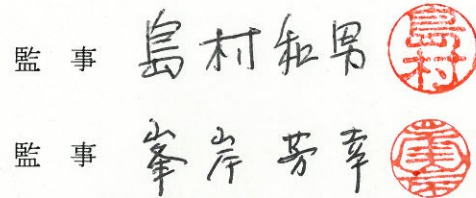 監事 島村和男 島村
監事 峯岸芳幸